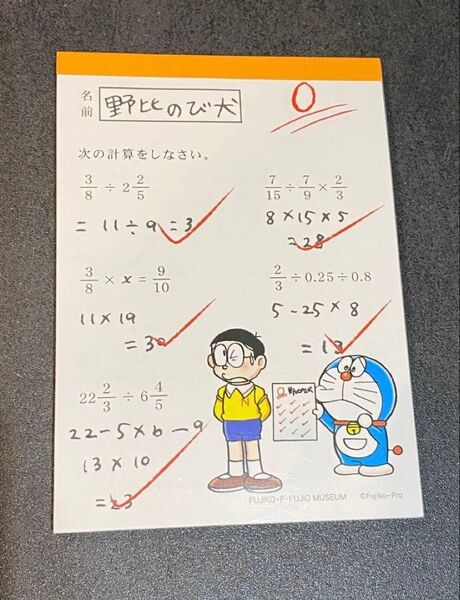 名前 野比のび犬
0
次の計算をしなさい。
3/8 ÷ 2 2/5
= 11÷9 = 3
7/15 ÷ 7/9 × 2/3
8×15×5
=28
3/8 × x = 9/10
11×19
=30
2/3 ÷ 0.25 ÷ 0.8
5-25×8
=13
22 2/3 ÷ 6 4/5
22-5×6-9
13×10
=23
FUJIKO・F・FUJIO MUSEUM ©Fujiko-Pro